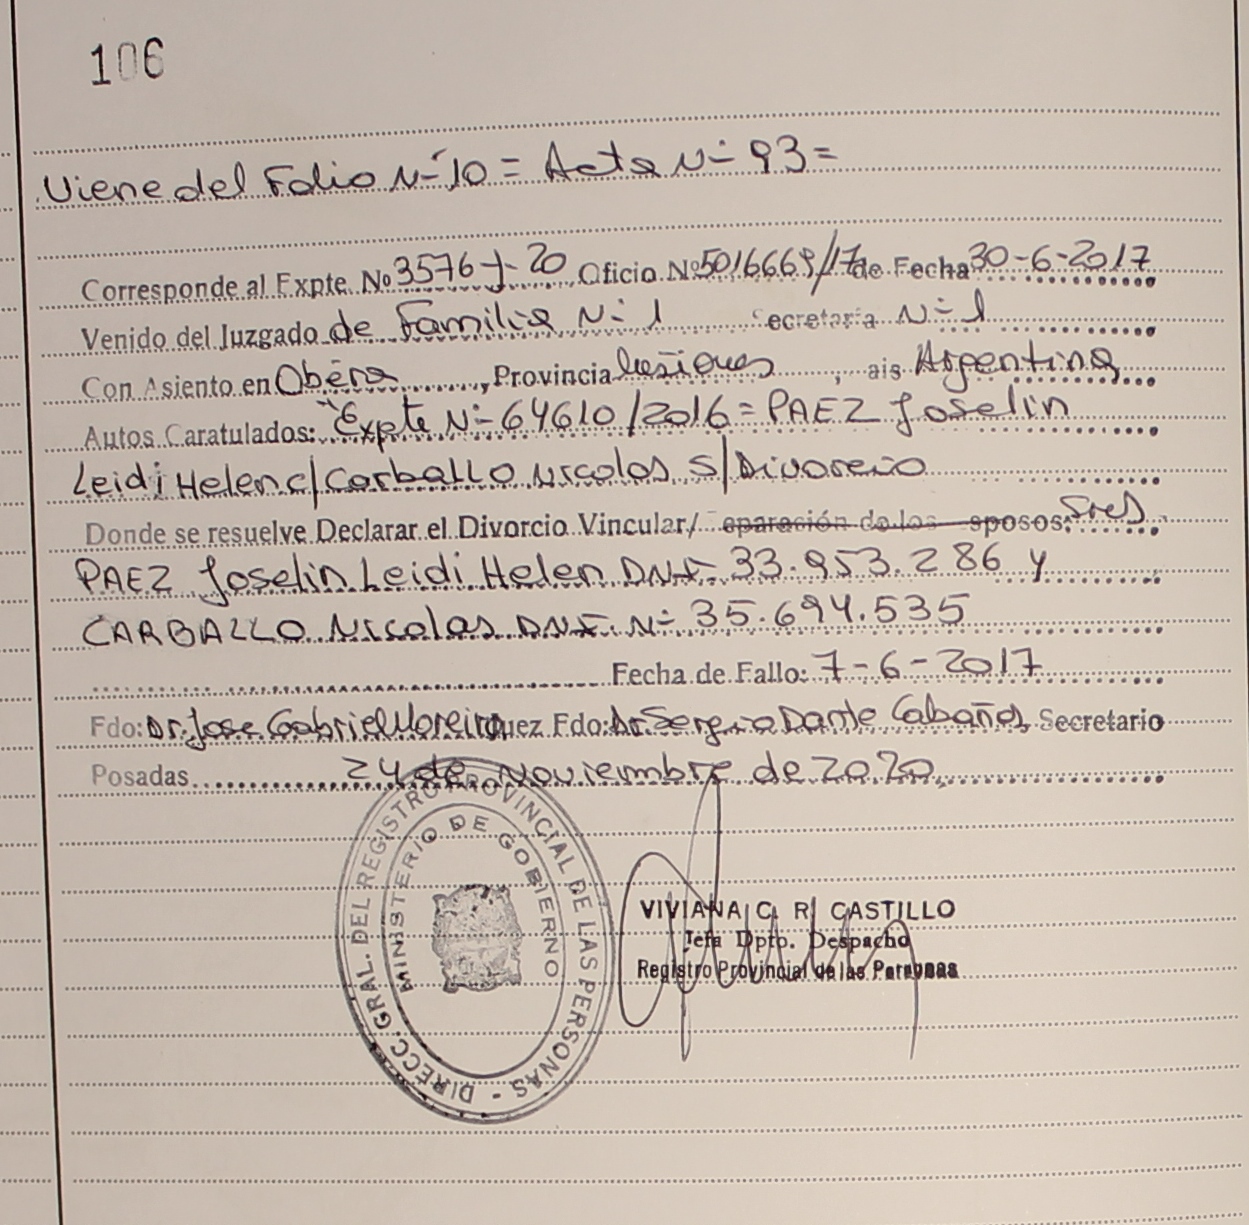 106
Viene del Folio Nº 10 = Acta Nº 93 =
Corresponde al Expte. Nº 3576-J-20 Oficio Nº 5016669/17 de Fecha 30-6-2017
Venido del Juzgado de Familia Nº 1 ecretaria Nº 1
Con Asiento en Oberá, Provincia Misiones, ais Argentina
Autos Caratulados: "Expte Nº 64610/2016 = PAEZ Joselin
Leidi Helen c/ Carballo Nicolas s/ Divorcio
Donde se resuelve Declarar el Divorcio Vincular/ eparación de los sposos: Sres
PAEZ Joselin Leidi Helen DNI- 33.953.286 y
CARBALLO Nicolas DNI Nº 35.694.535
Fecha de Fallo: 7-6-2017
Fdo: Dr. Jose Gabriel Moreira uez Fdo: Dr. Sergio Dante Cabañas Secretario
Posadas 24 de Noviembre de 2020
DIRECC. GRAL. DEL REGISTRO PROVINCIAL DE LAS PERSONAS -
MINISTERIO DE GOBIERNO
VIVIANA C. R. CASTILLO
Jefa Dpto. Despacho
Registro Provincial de las Personas